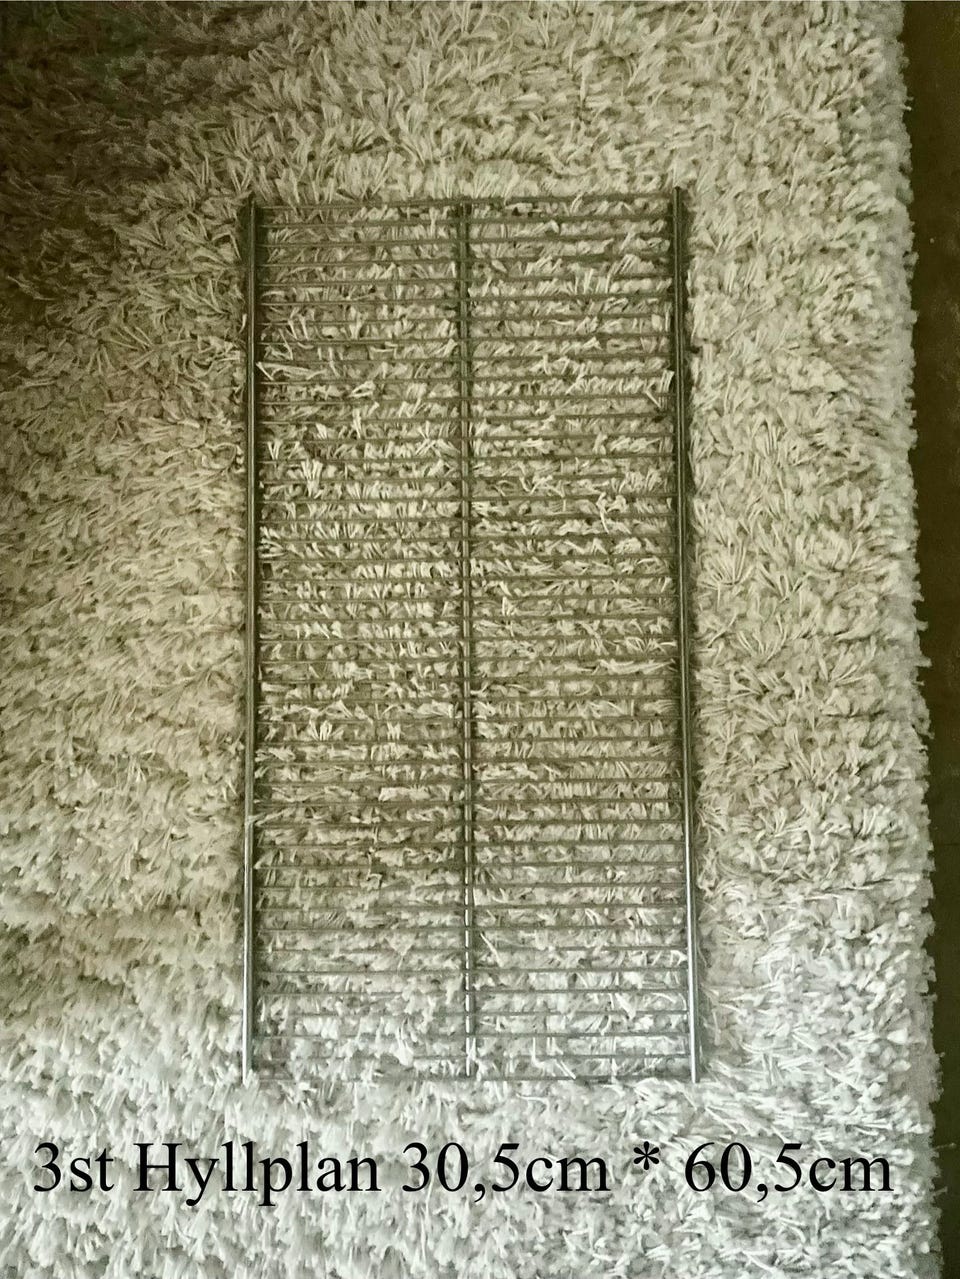 3st Hyllplan 30,5cm * 60,5cm